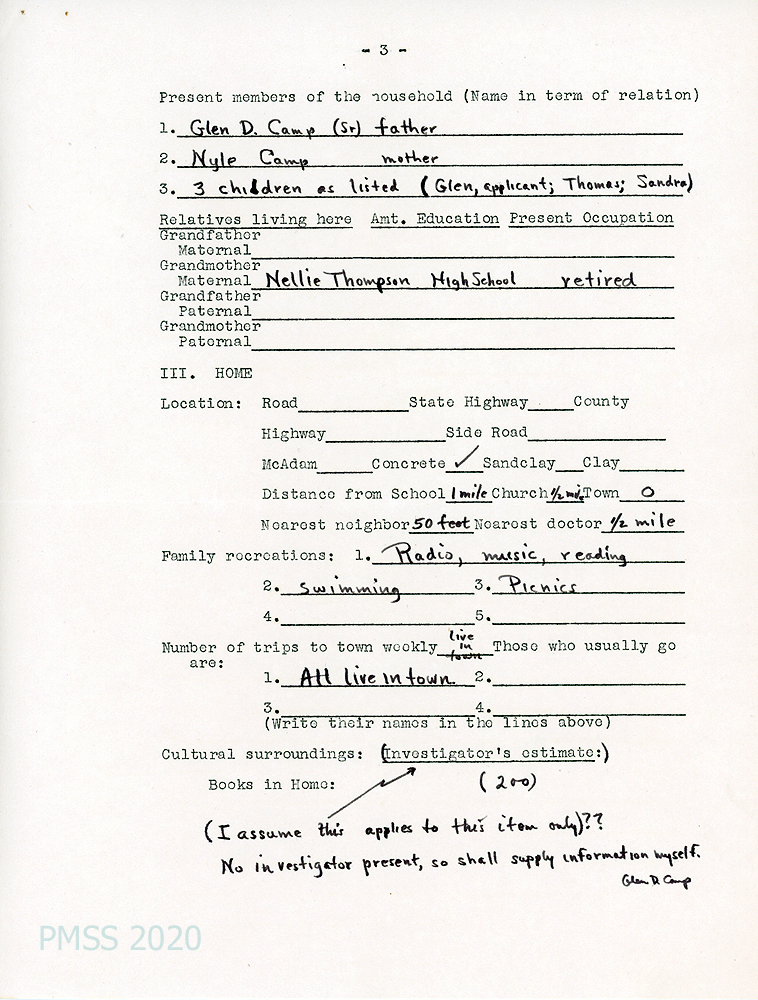 - 3 -
Present members of the household (Name in term of relation)
1. Glen D. Camp (Sr) father
2. Nyle Camp mother
3. 3 children as listed (Glen, applicant; Thomas; Sandra)
Relatives living here Amt. Education Present Occupation
Grandfather
Maternal
Grandmother
Maternal Nellie Thompson High School retired
Grandfather
Paternal
Grandmother
Paternal
III. HOME
Location: Road State Highway County
Highway Side Road
McAdam Concrete ✓ Sandclay Clay
Distance from School 1 mile Church 1/2 mi. Town 0
Nearest neighbor 50 feet Nearest doctor 1/2 mile
Family recreations: 1. Radio, music, reading
2. swimming 3. Picnics
4. 5.
Number of trips to town weekly live in town Those who usually go
are:
1. All live in town. 2.
3. 4.
(Write their names in the lines above)
Cultural surroundings: (Investigator's estimate:)
Books in Home: (200)
(I assume this applies to this item only)??
No investigator present, so shall supply information myself.
Glen D. Camp
PMSS 2020